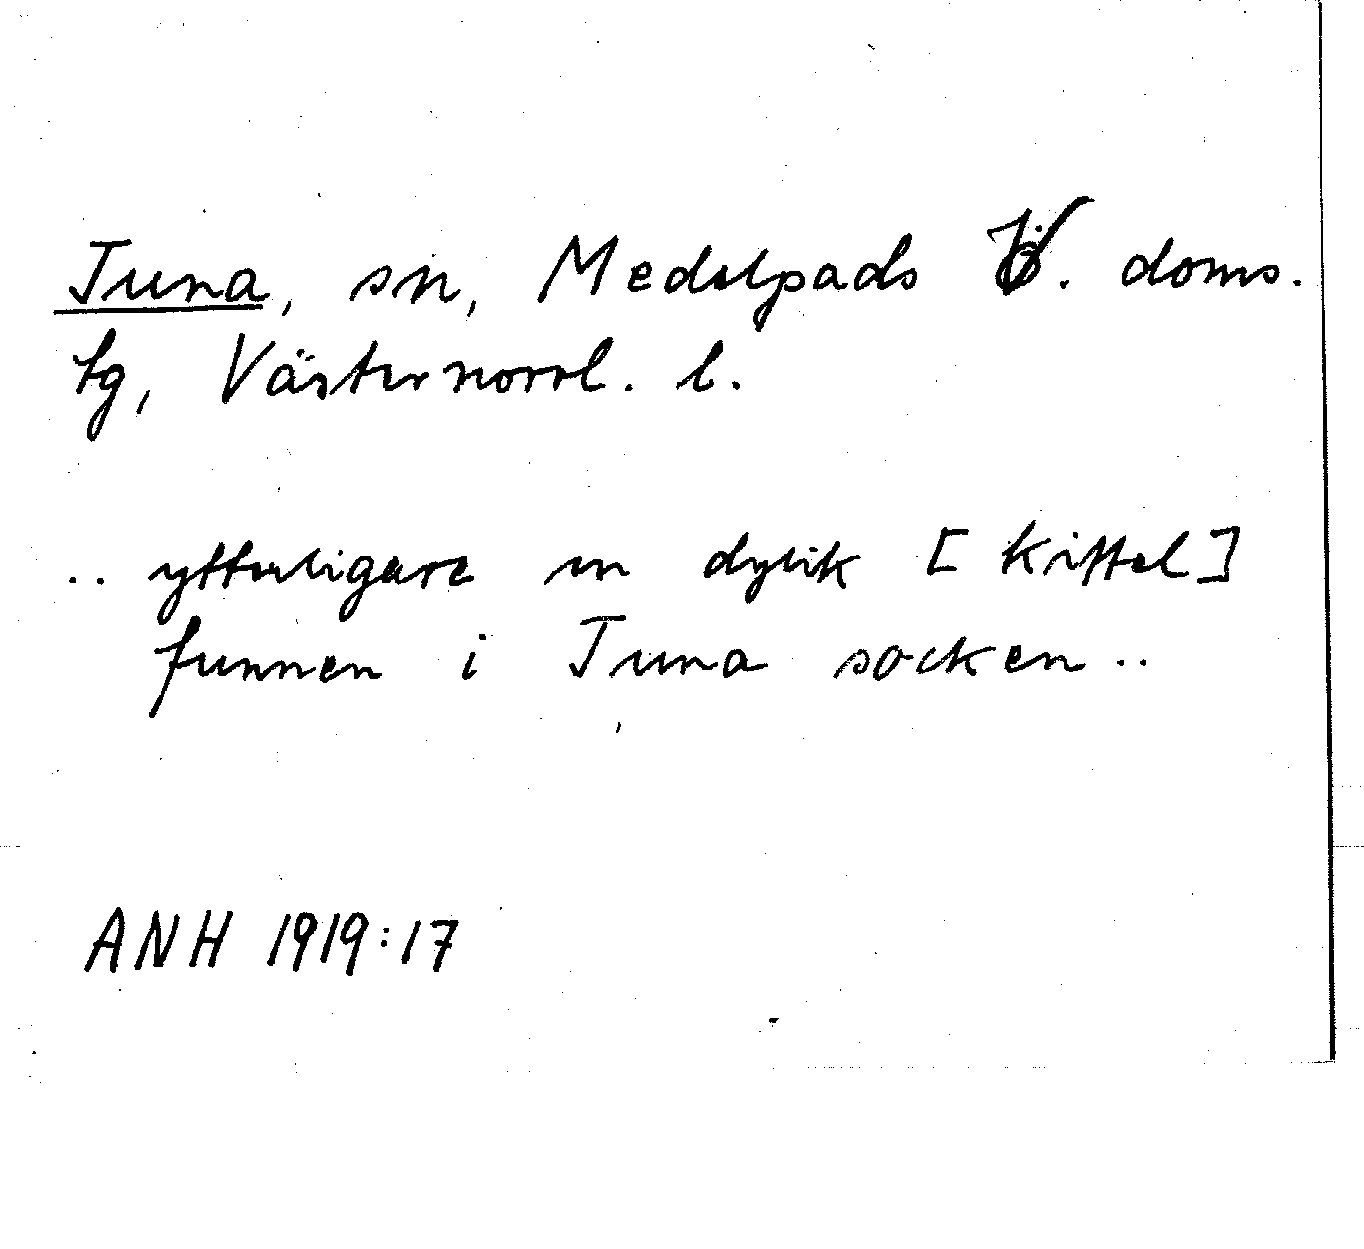 Tuna, sn, Medelpads V. doms.
sg, Västernorrl. l.
.. ytterligare en dylik [kittel]
funnen i Tuna socken ..
ANH 1919:17